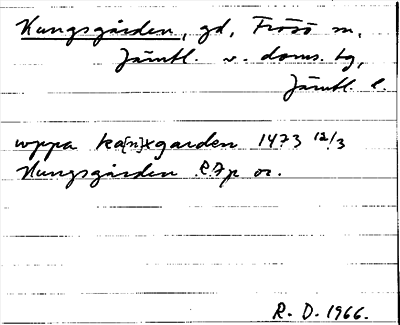 Kungsgården, gd, Frösö sn,
Jämtl. v. doms. tg,
Jämtl. l.
wppa ka[n]xgarden 1473 12/3
Kungsgården RAp or.
R. D. 1966.